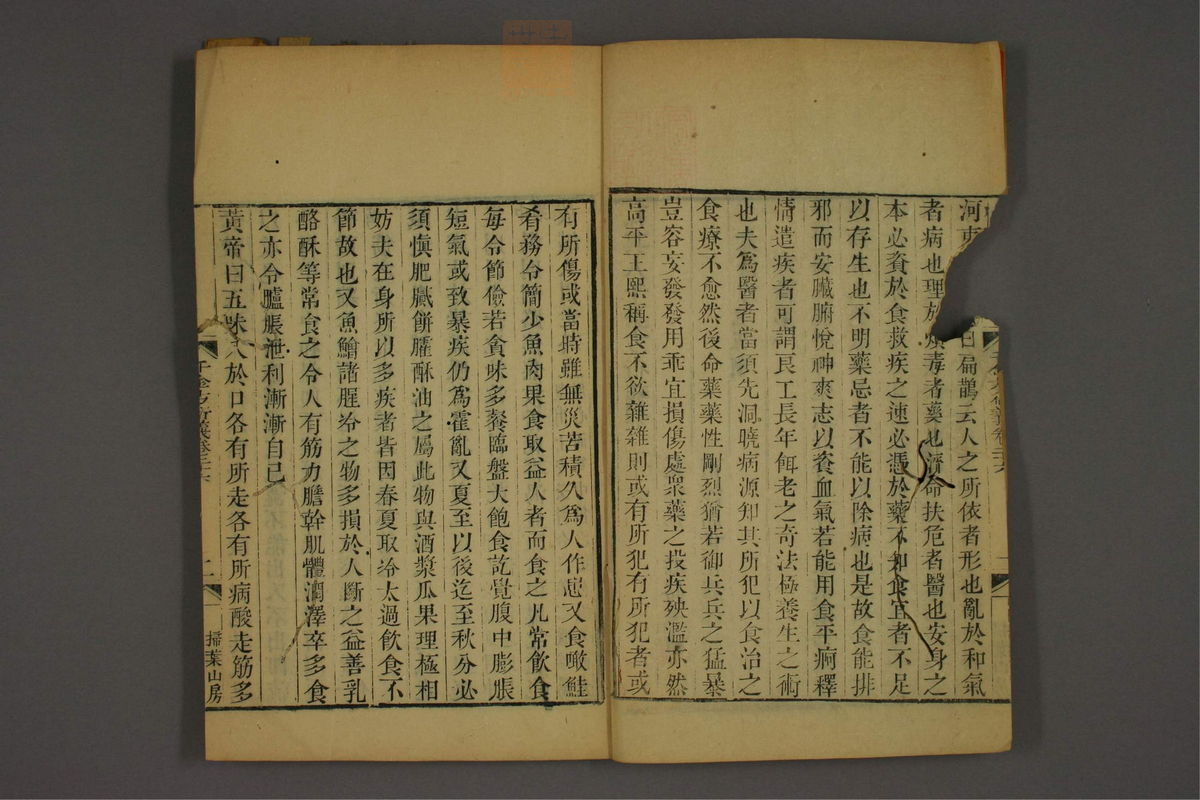 河東
曰扁鵲云人之所依者形也亂於和氣
者病也理於煩毒者藥也濟命扶危者醫也安身之
本必資於食救疾之速必憑於藥不知食宜者不足
以存生也不明藥忌者不能以除病也是故食能排
邪而安臟腑悅神爽志以資血氣若能用食平痾釋
情遣疾者可謂良工長年餌老之奇法極養生之術
也夫為醫者當須先洞曉病源知其所犯以食治之
食療不愈然後命藥藥性剛烈猶若御兵兵之猛暴
豈容妄發發用乖宜損傷處眾藥之投疾殃濫亦然
高平王熙稱食不欲雜雜則或有所犯有所犯者或
有所傷或當時雖無災苦積久為人作患又食噉鮭
肴務令簡少魚肉果食取益人者而食之凡常飲食
每令節儉若貪味多餐臨盤大飽食訖覺腹中膨脹
短氣或致暴疾仍為霍亂又夏至以後迄至秋分必
須慎肥膩餅臛酥油之屬此物與酒漿瓜果理極相
妨夫在身所以多疾者皆因春夏取冷太過飲食不
節故也又魚鱠諸腥冷之物多損於人斷之益善乳
酪酥等常食之令人有筋力膽幹肌體潤澤卒多食
之亦令臚脹泄利漸漸自已
黃帝曰五味入於口各有所走各有所病酸走筋多
千金方衍義卷二十六
二
掃葉山房